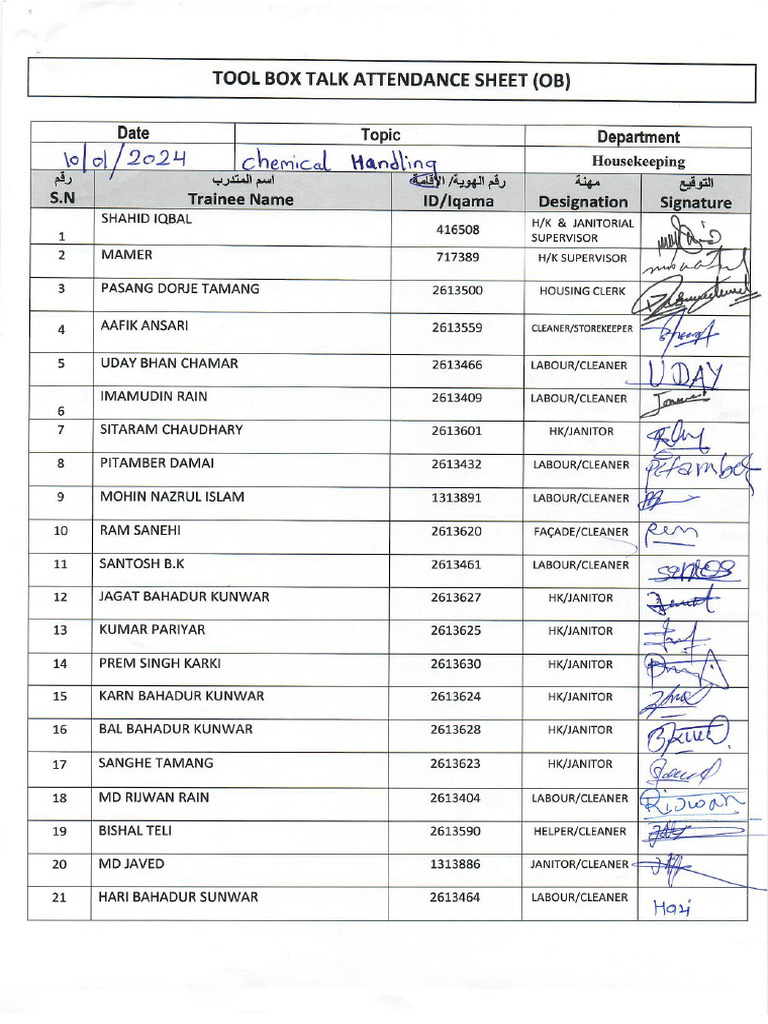 TOOL BOX TALK ATTENDANCE SHEET (OB)
Date Topic Department
10/01/2024 Chemical Handling Housekeeping
رقم اسم المتدرب رقم الهوية/ الأقامة مهنة التوقيع
S.N Trainee Name ID/Iqama Designation Signature
1 SHAHID IQBAL 416508 H/K & JANITORIAL SUPERVISOR
2 MAMER 717389 H/K SUPERVISOR
3 PASANG DORJE TAMANG 2613500 HOUSING CLERK
4 AAFIK ANSARI 2613559 CLEANER/STOREKEEPER
5 UDAY BHAN CHAMAR 2613466 LABOUR/CLEANER UDAY
6 IMAMUDIN RAIN 2613409 LABOUR/CLEANER
7 SITARAM CHAUDHARY 2613601 HK/JANITOR
8 PITAMBER DAMAI 2613432 LABOUR/CLEANER
9 MOHIN NAZRUL ISLAM 1313891 LABOUR/CLEANER
10 RAM SANEHI 2613620 FAÇADE/CLEANER
11 SANTOSH B.K 2613461 LABOUR/CLEANER
12 JAGAT BAHADUR KUNWAR 2613627 HK/JANITOR
13 KUMAR PARIYAR 2613625 HK/JANITOR
14 PREM SINGH KARKI 2613630 HK/JANITOR
15 KARN BAHADUR KUNWAR 2613624 HK/JANITOR
16 BAL BAHADUR KUNWAR 2613628 HK/JANITOR
17 SANGHE TAMANG 2613623 HK/JANITOR
18 MD RIJWAN RAIN 2613404 LABOUR/CLEANER Ridwan
19 BISHAL TELI 2613590 HELPER/CLEANER
20 MD JAVED 1313886 JANITOR/CLEANER
21 HARI BAHADUR SUNWAR 2613464 LABOUR/CLEANER Hari